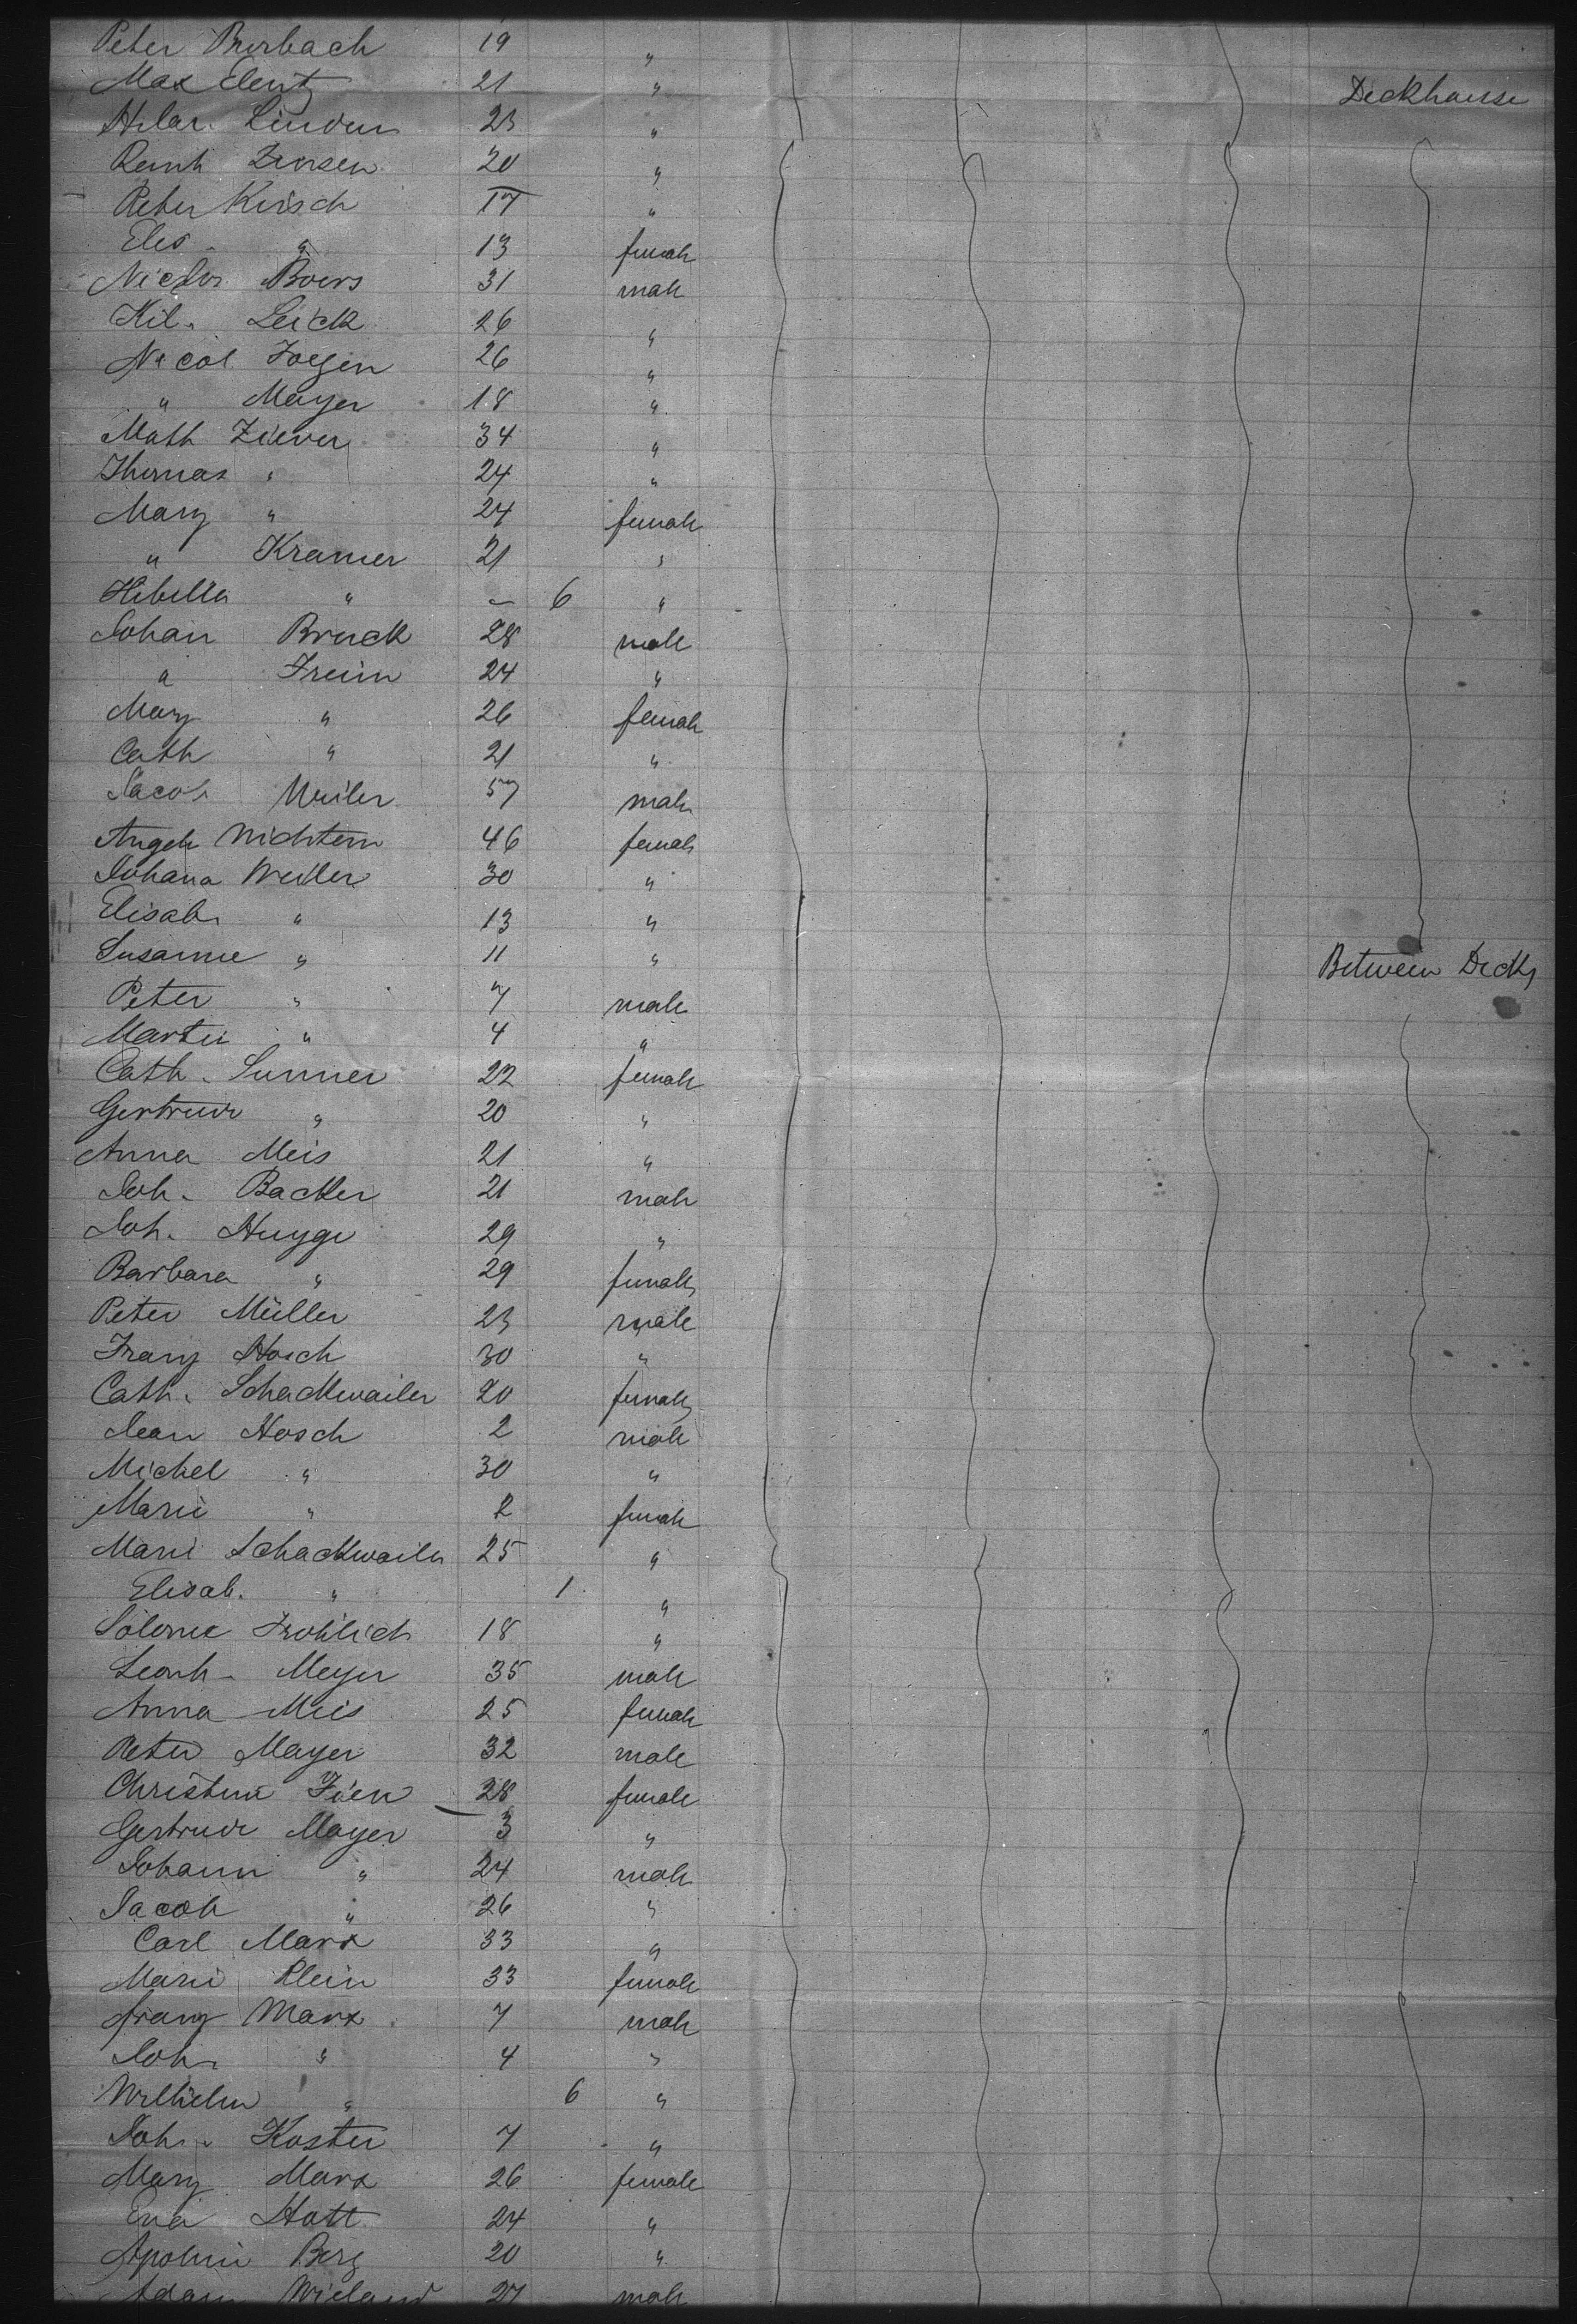 Peter Burbach 19 "
Max Elentz 21 " Deckhause
Hilar. Linden 23 "
Reinh 20 "
Peter Kirsch 17 "
Elis. " 13 female
Nicolas Boers 31 male
Hil. Leick 26 "
Nicol 26 "
" Mayer 18 "
Math Ziever 34 "
Thomas " 24 "
Mary " 24 female
" Kramer 21 "
Hibella " – 6 "
Johan Bruck 28 male
" Freim 24 "
Mary " 26 female
Cath " 21 "
Jacob Weiler 57 male
Angela 46 female
Johana Weiler 30 "
Elisab. " 13 "
Susanne " 11 " Between Decks
Peter " 7 male
Martin " 4 "
Cath. Sunner 22 female
Gertrude " 20 "
Anna Meis 21 "
Joh. Backer 21 male
Joh. Huyge 29 "
Barbara " 29 female
Peter Müller 23 male
Franz Hosch 30 "
Cath. Schackwailer 20 female
Jean Hosch 2 male
Michel " 30 "
Marie " 2 female
Marie Schackwailer 25 "
Elisab. " 1 "
Frohlich 18 "
Leonh. Meyer 35 male
Anna Meis 25 female
Peter Mayer 32 male
Christine Fien 28 female
Gertrude Mayer 3 "
Johann " 24 male
Jacob " 26 "
Carl Marx 33 "
Marie Klein 33 female
Franz Marx 7 male
Joh. " 4 "
Wilhelm " 6 "
Joh. Koster 7 "
Mary Marx 26 female
Eva Hott 24 "
Apolnie Berg 20 "
Adam Wieland 27 male